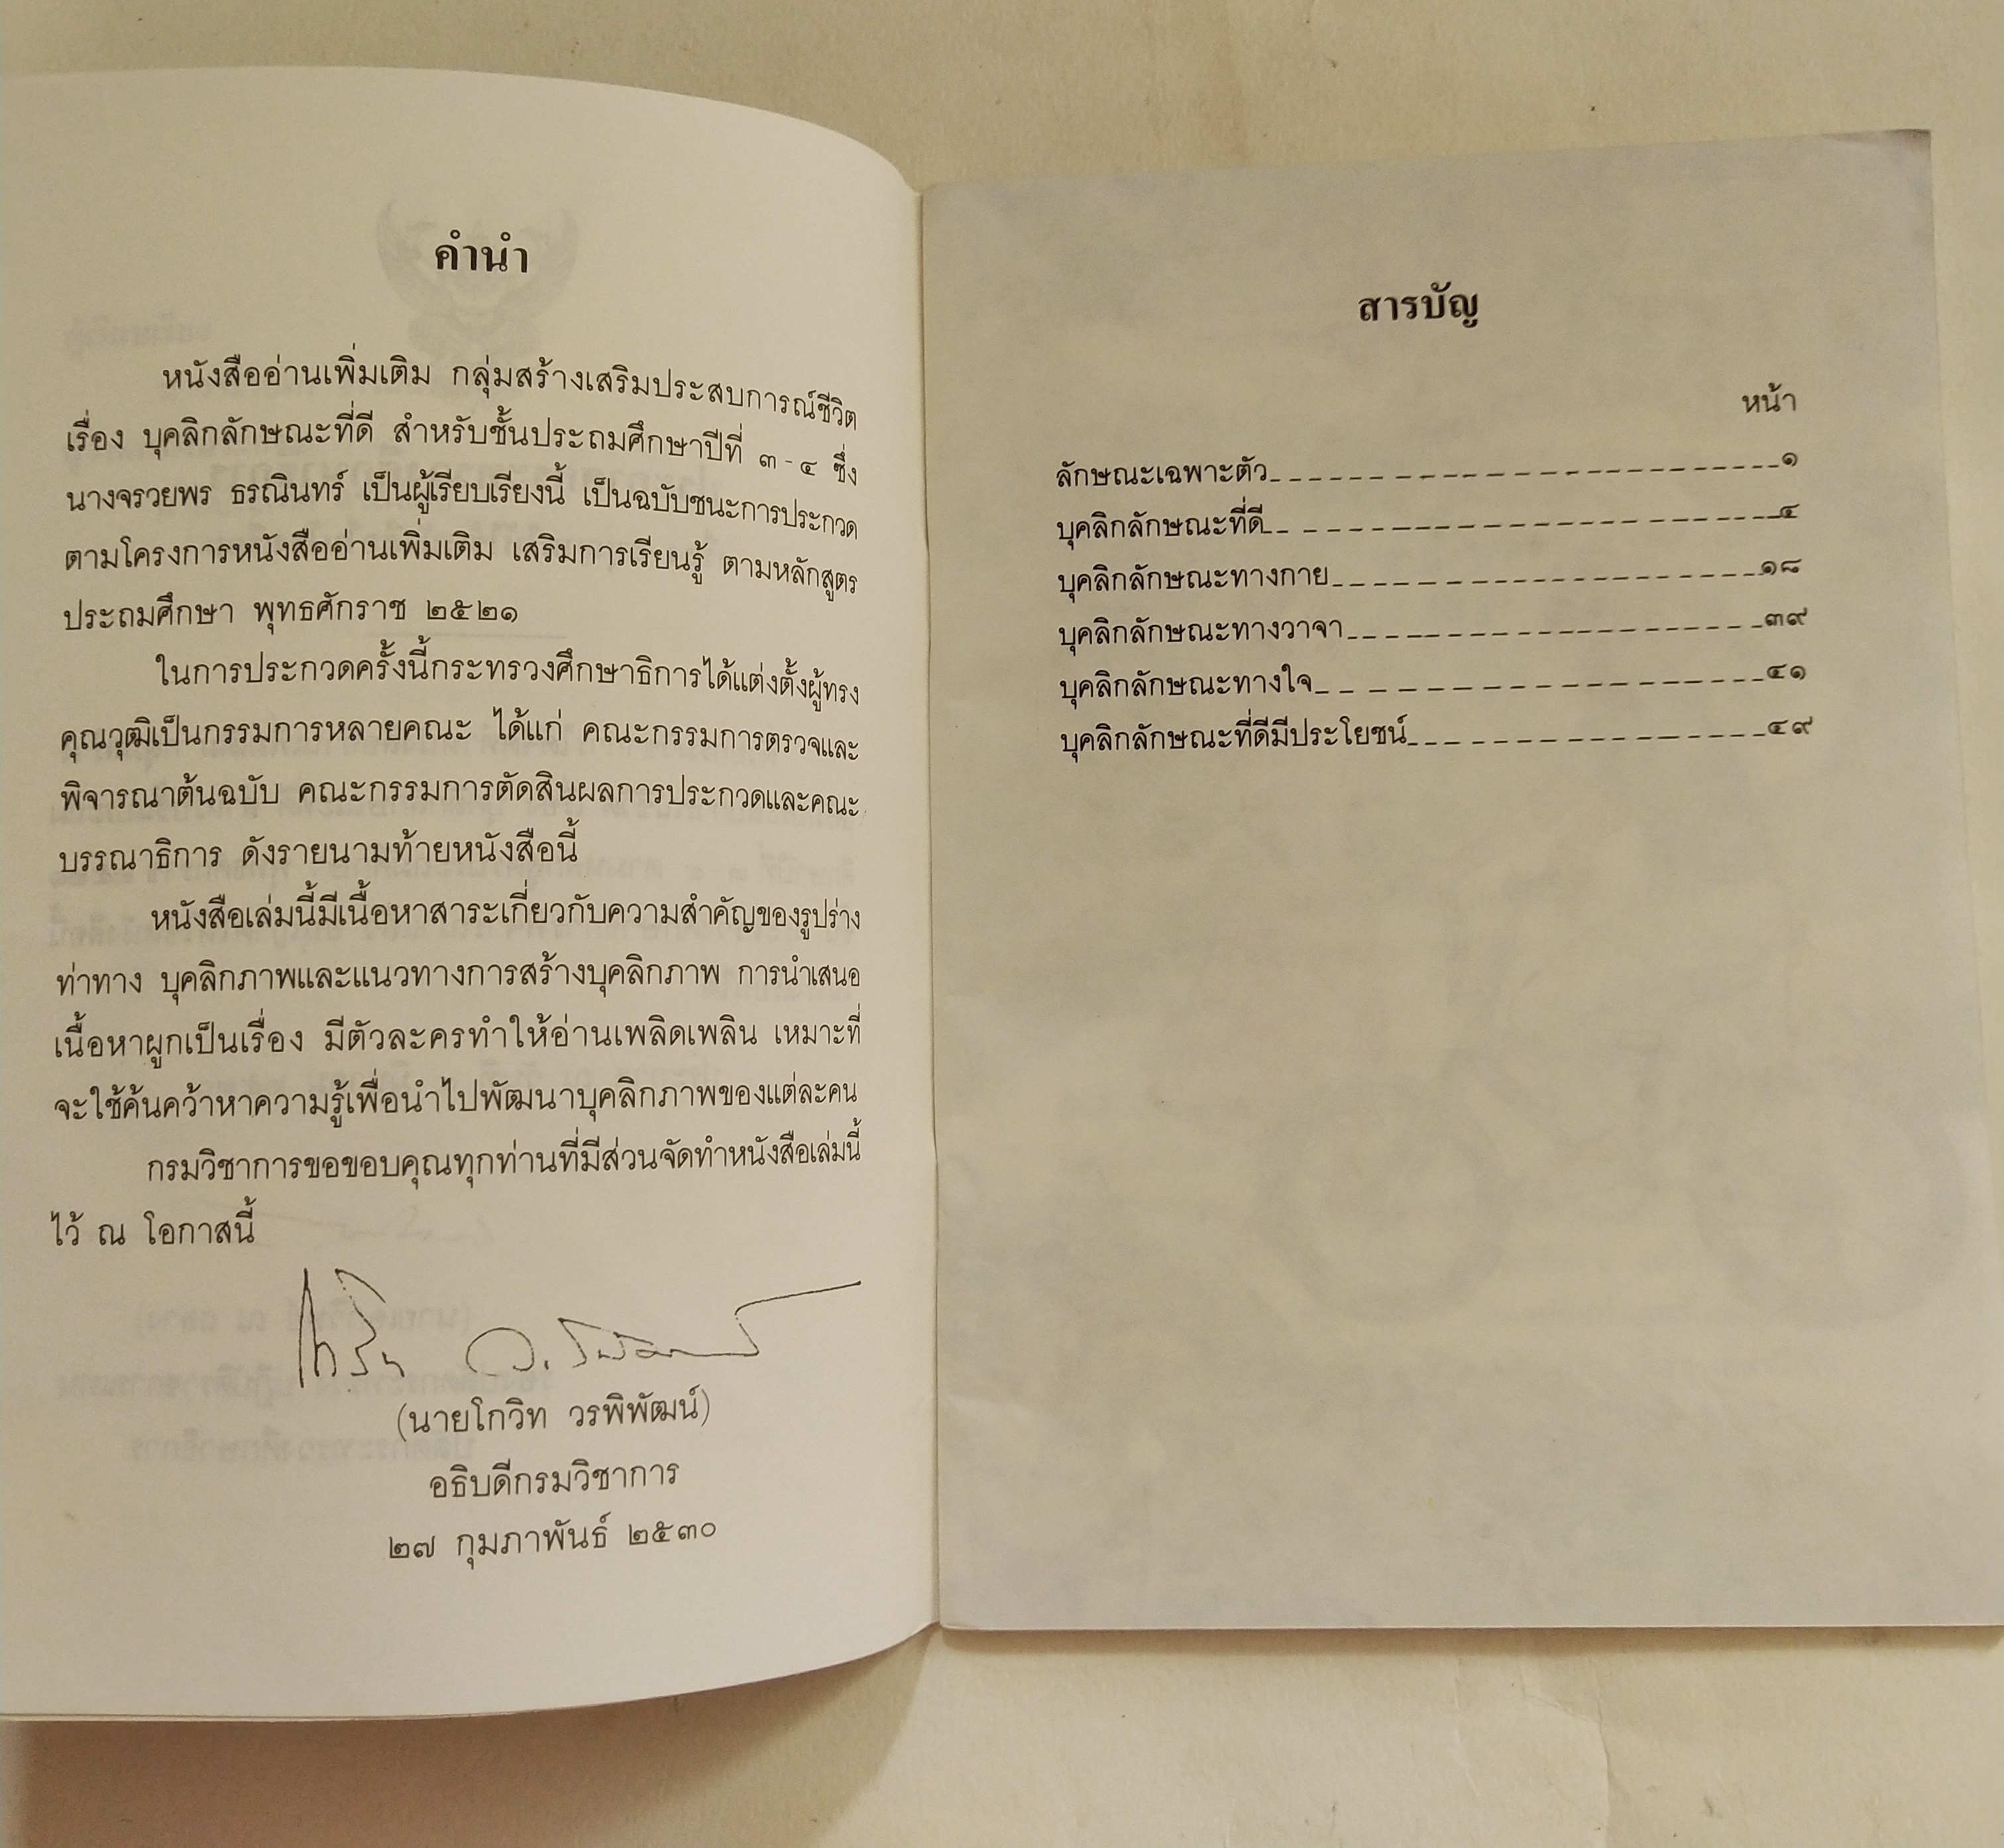 คำนำ
หนังสืออ่านเพิ่มเติม กลุ่มสร้างเสริมประสบการณ์ชีวิต
เรื่อง บุคลิกลักษณะที่ดี สำหรับชั้นประถมศึกษาปีที่ ๓ - ๔ ซึ่ง
นางจรวยพร ธรณินทร์ เป็นผู้เรียบเรียงนี้ เป็นฉบับชนะการประกวด
ตามโครงการหนังสืออ่านเพิ่มเติม เสริมการเรียนรู้ ตามหลักสูตร
ประถมศึกษา พุทธศักราช ๒๕๒๑
ในการประกวดครั้งนี้กระทรวงศึกษาธิการได้แต่งตั้งผู้ทรง
คุณวุฒิเป็นกรรมการหลายคณะ ได้แก่ คณะกรรมการตรวจและ
พิจารณาต้นฉบับ คณะกรรมการตัดสินผลการประกวดและคณะ
บรรณาธิการ ดังรายนามท้ายหนังสือนี้
หนังสือเล่มนี้มีเนื้อหาสาระเกี่ยวกับความสำคัญของรูปร่าง
ท่าทาง บุคลิกภาพและแนวทางการสร้างบุคลิกภาพ การนำเสนอ
เนื้อหาผูกเป็นเรื่อง มีตัวละครทำให้อ่านเพลิดเพลิน เหมาะที่
จะใช้ค้นคว้าหาความรู้เพื่อนำไปพัฒนาบุคลิกภาพของแต่ละคน
กรมวิชาการขอขอบคุณทุกท่านที่มีส่วนจัดทำหนังสือเล่มนี้
ไว้ ณ โอกาสนี้
(นายโกวิท วรพิพัฒน์)
อธิบดีกรมวิชาการ
๒๗ กุมภาพันธ์ ๒๕๓๐
สารบัญ
หน้า
ลักษณะเฉพาะตัว ๑
บุคลิกลักษณะที่ดี ๔
บุคลิกลักษณะทางกาย ๑๘
บุคลิกลักษณะทางวาจา ๓๙
บุคลิกลักษณะทางใจ ๔๑
บุคลิกลักษณะที่ดีมีประโยชน์ ๔๙